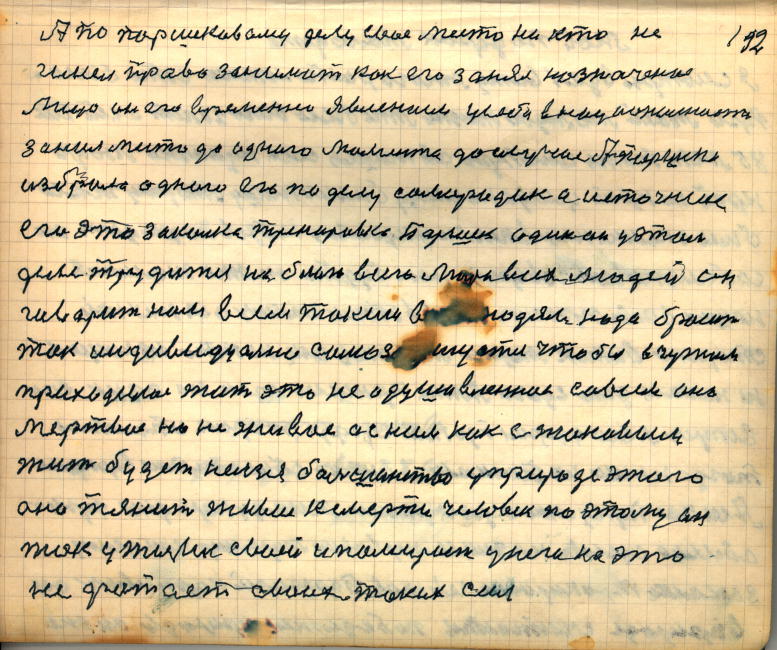 А по паршековому делу свое место ни кто не 192
имел право занимат как его занял назначено
лицо он его временно явлением
занял место до одного момента до случае А паршека
избрала одного его по делу а источник
его это закалка тренировка Паршек один он у этом
деле трудится на благо всего Мира всех людей он
гаварит нам всем таким в людям нада бросит
так индивидуално чтобы в чужом
приходилос жит это не одушевленное совсем оно
мертвое но не живое а с ним как с таковым
жит будет нелзя болшинство у природе этого
оно тянит живое к смерти человек по этому он
так у жизни своей и помирает у него на это
не хватает своих таких сил